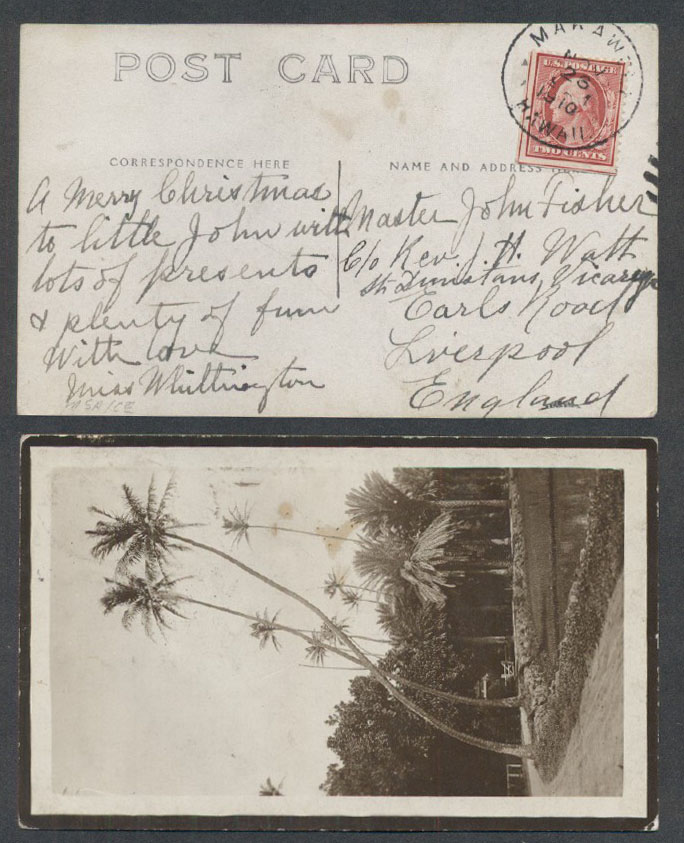 POST CARD
MAKAWAO
NOV
23
1910
HAWAII
U.S. POSTAGE
TWO CENTS
CORRESPONDENCE HERE
NAME AND ADDRESS HERE
A Merry Christmas
to little John with
lots of presents
& plenty of fun
With love
Miss Whittington
Master John Fisher
C/o Rev. J. H. Watt
St. Dunstans Vicarage
Earls Road
Liverpool
England